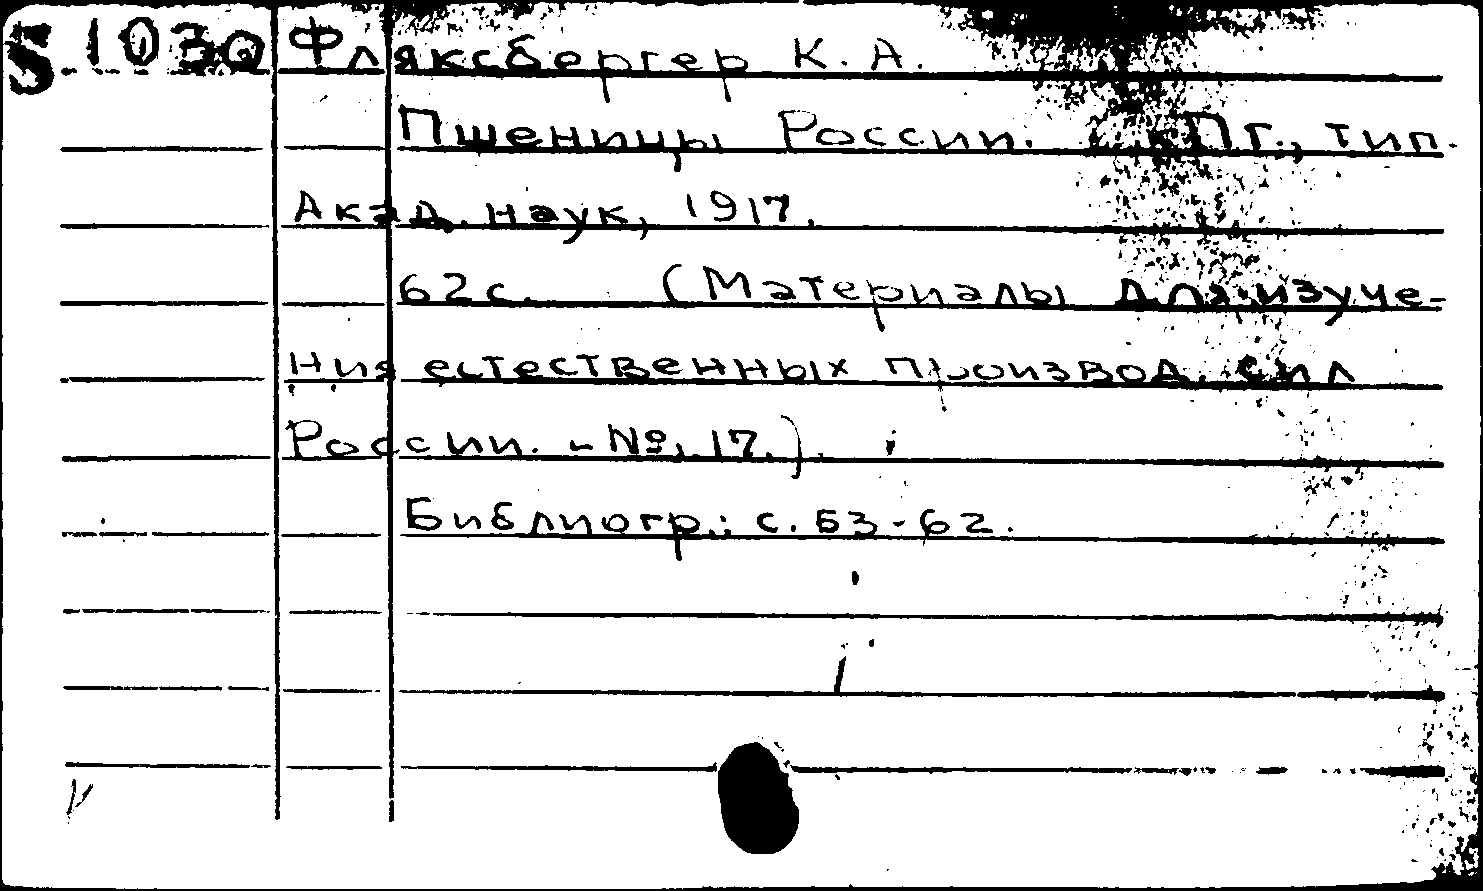 S 1030 Фляксбергер К. А.
Пшеницы России. Пг., тип.
Акад. наук, 1917.
62 с. (Материалы для изуче-
ния естественных произвов. сил
России. - №. 17.).
Библиогр.: с. 53-62.